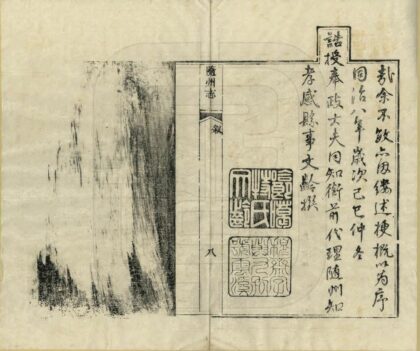 哉余不敏亦爰縷述梗概以為序
同治八年歲次己巳仲冬
誥授奉政大夫同知銜前代理隨州知
孝感縣事文齡撰
隨州志
叙
八